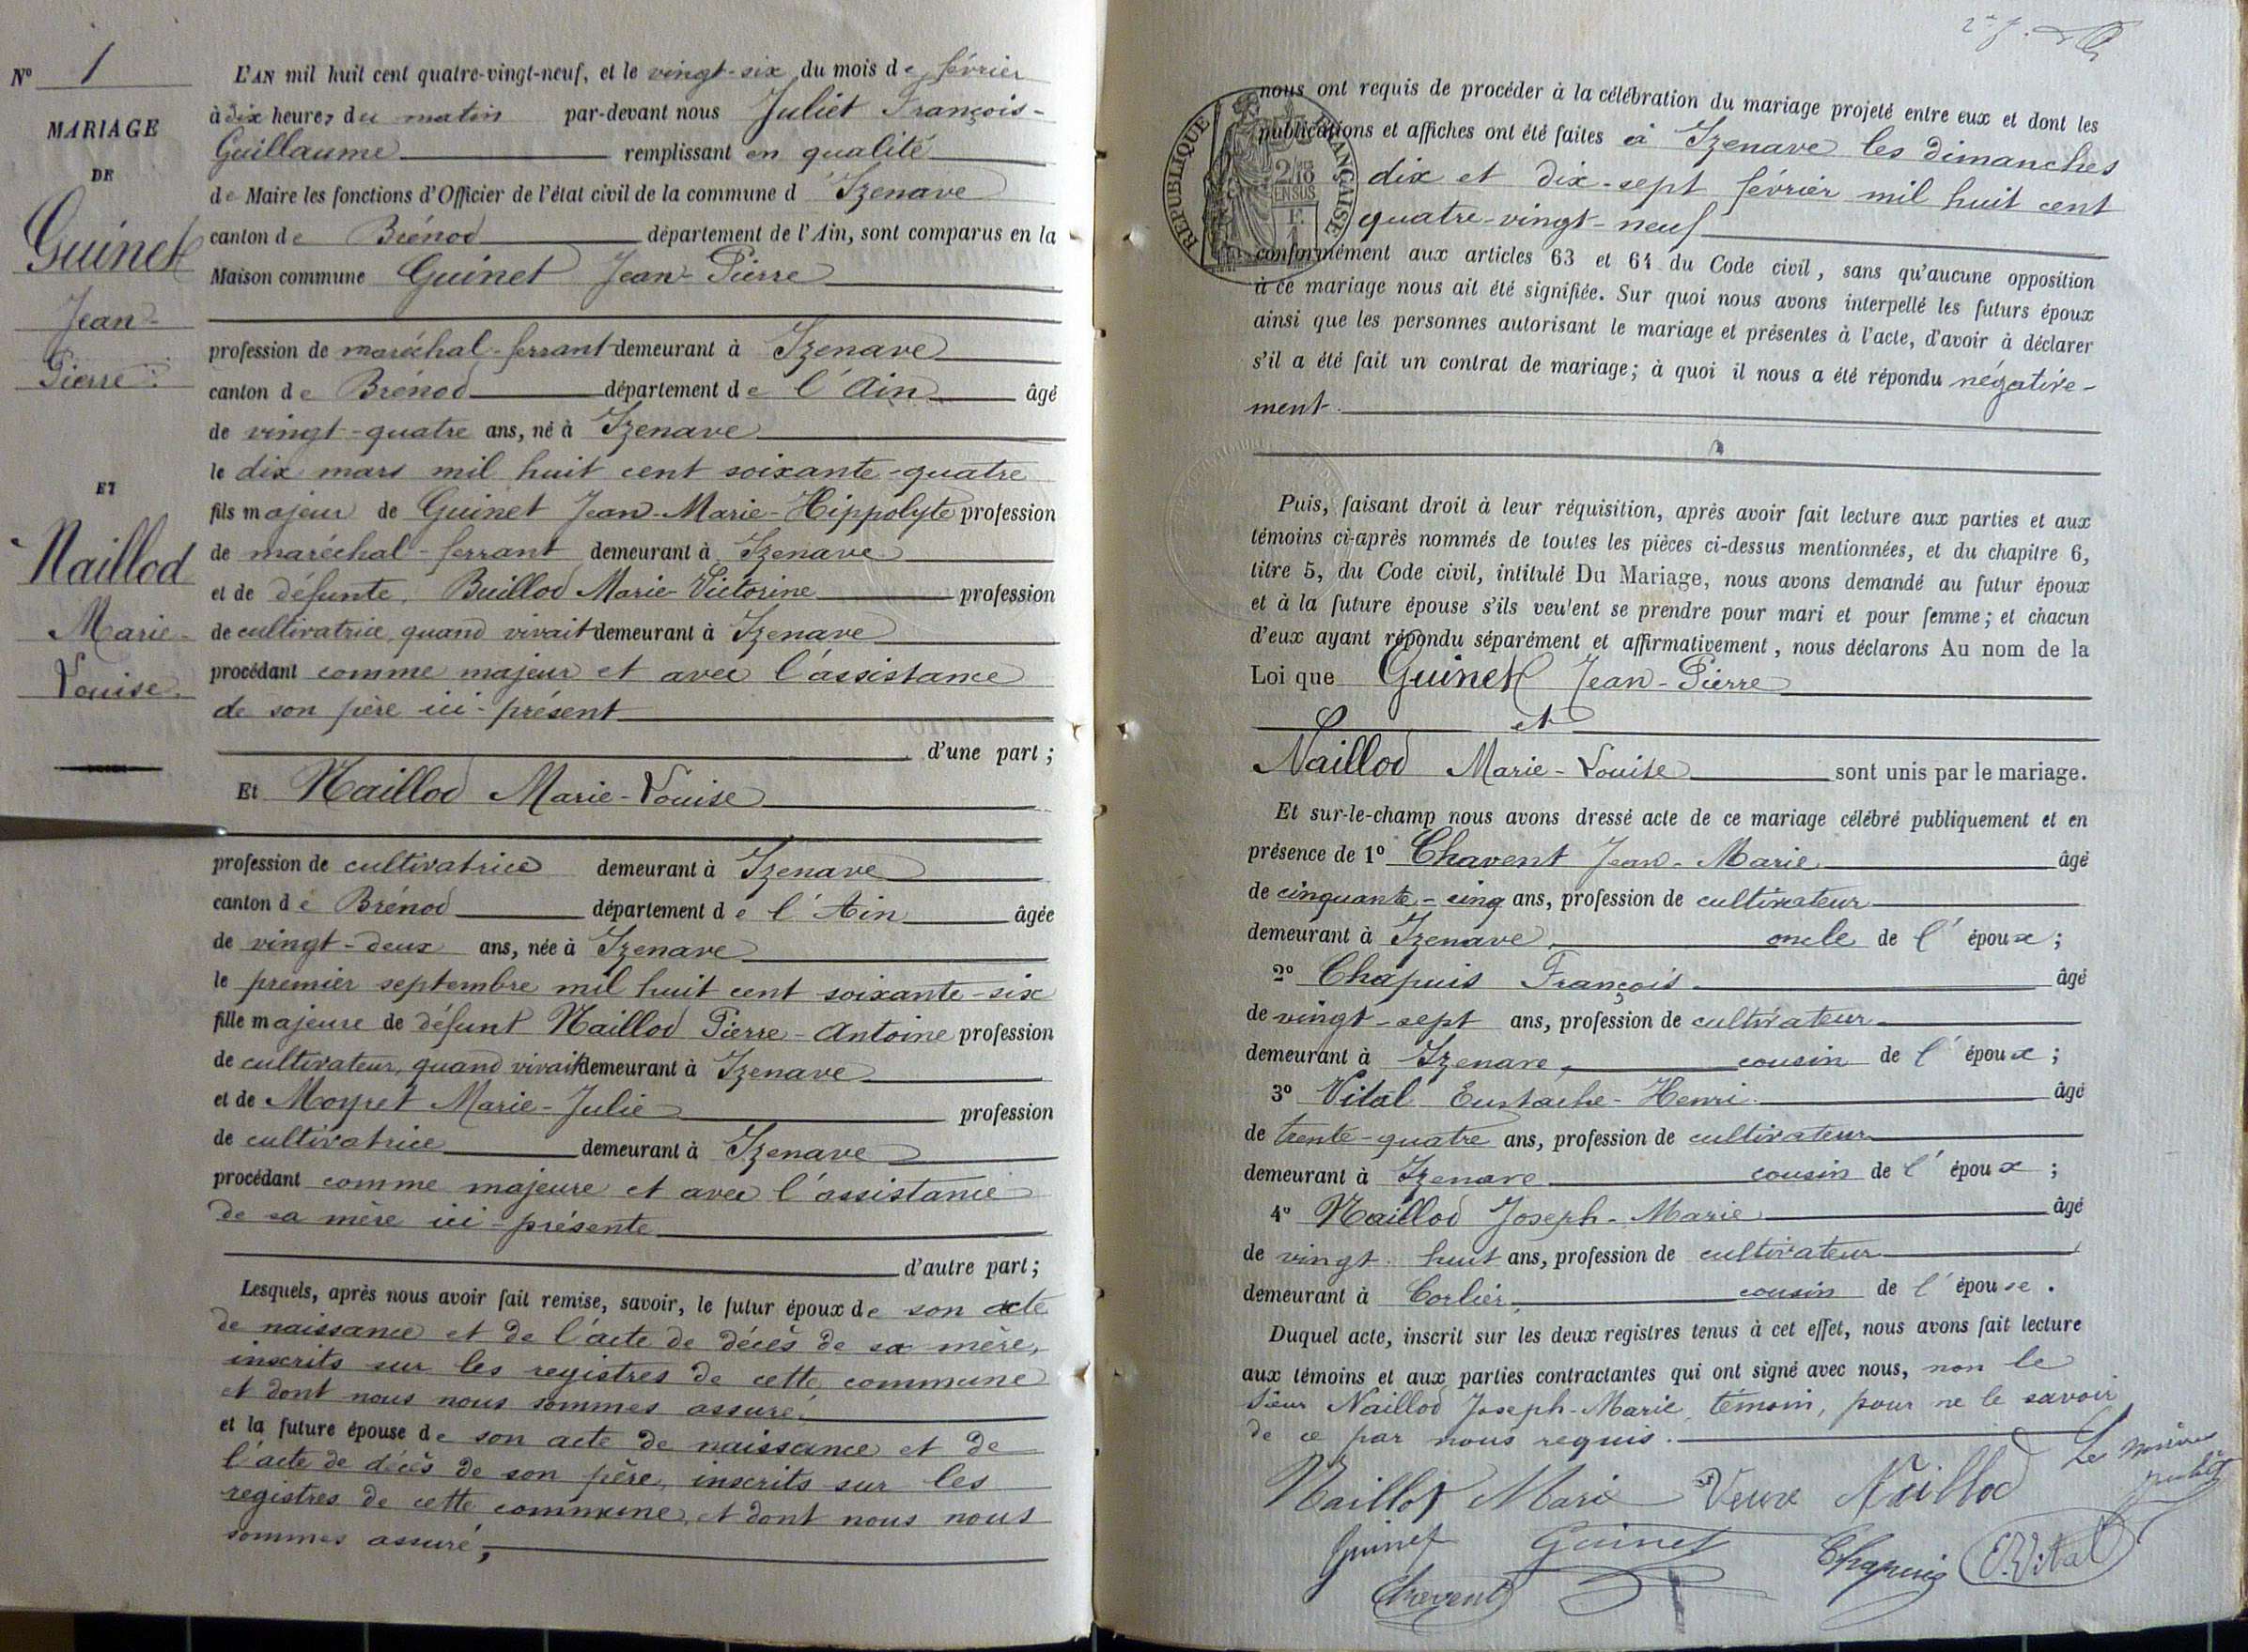 N° 1
MARIAGE
DE
Guinet
Jean-
Pierre
ET
Naillod
Marie-
Louise
L'AN mil huit cent quatre-vingt-neuf, et le vingt-six du mois de février
à dix heures du matin par-devant nous Juliet François-
Guillaume remplissant en qualité
de Maire les fonctions d'Officier de l'état civil de la commune d'Izenave
canton de Brénod département de l'Ain, sont comparus en la
Maison commune Guinet Jean-Pierre
profession de maréchal-ferrant demeurant à Izenave
canton de Brénod département de l'Ain âgé
de vingt-quatre ans, né à Izenave
le dix mars mil huit cent soixante-quatre
fils majeur de Guinet Jean-Marie-Hippolyte profession
de maréchal-ferrant demeurant à Izenave
et de défunte Buillod Marie-Victorine profession
de cultivatrice, quand vivait demeurant à Izenave
procédant comme majeur et avec l'assistance
de son père ici-présent
d'une part ;
Et Naillod Marie-Louise
profession de cultivatrice demeurant à Izenave
canton de Brénod département de l'Ain âgée
de vingt-deux ans, née à Izenave
le premier septembre mil huit cent soixante-six
fille majeure de défunt Naillod Pierre-Antoine profession
de cultivateur, quand vivait demeurant à Izenave
et de Moyret Marie-Julie profession
de cultivatrice demeurant à Izenave
procédant comme majeure et avec l'assistance
de sa mère ici-présente
d'autre part ;
Lesquels, après nous avoir fait remise, savoir, le futur époux de son acte
de naissance et de l'acte de décès de sa mère,
inscrits sur les registres de cette commune
et dont nous nous sommes assuré,
et la future épouse de son acte de naissance et de
l'acte de décès de son père, inscrits sur les
registres de cette commune, et dont nous nous
sommes assuré,
RÉPUBLIQUE FRANÇAISE
nous ont requis de procéder à la célébration du mariage projeté entre eux et dont les
publications et affiches ont été faites à Izenave les dimanches
dix et dix-sept février mil huit cent
quatre-vingt-neuf
conformément aux articles 63 et 64 du Code civil, sans qu'aucune opposition
à ce mariage nous ait été signifiée. Sur quoi nous avons interpellé les futurs époux
ainsi que les personnes autorisant le mariage et présentes à l'acte, d'avoir à déclarer
s'il a été fait un contrat de mariage ; à quoi il nous a été répondu négative-
ment.
Puis, faisant droit à leur réquisition, après avoir fait lecture aux parties et aux
témoins ci-après nommés de toutes les pièces ci-dessus mentionnées, et du chapitre 6,
titre 5, du Code civil, intitulé Du Mariage, nous avons demandé au futur époux
et à la future épouse s'ils veulent se prendre pour mari et pour femme ; et chacun
d'eux ayant répondu séparément et affirmativement, nous déclarons Au nom de la
Loi que Guinet Jean-Pierre
et
Naillod Marie-Louise sont unis par le mariage.
Et sur-le-champ nous avons dressé acte de ce mariage célébré publiquement et en
présence de 1° Chavent Jean-Marie âgé
de cinquante-cinq ans, profession de cultivateur
demeurant à Izenave, oncle de l'époux ;
2° Chapuis François âgé
de vingt-sept ans, profession de cultivateur
demeurant à Izenave, cousin de l'époux ;
3° Vital Eustache-Henri âgé
de trente-quatre ans, profession de cultivateur
demeurant à Izenave cousin de l'époux ;
4° Naillod Joseph-Marie âgé
de vingt-huit ans, profession de cultivateur
demeurant à Corlier, cousin de l'épouse.
Duquel acte, inscrit sur les deux registres tenus à cet effet, nous avons fait lecture
aux témoins et aux parties contractantes qui ont signé avec nous, non le
sieur Naillod Joseph-Marie, témoin, pour ne le savoir
de ce par nous requis.
Naillod Marie Veuve Naillod Le Maire
Juliet
Guinet Guinet Chapuis E. Vital
Chavent